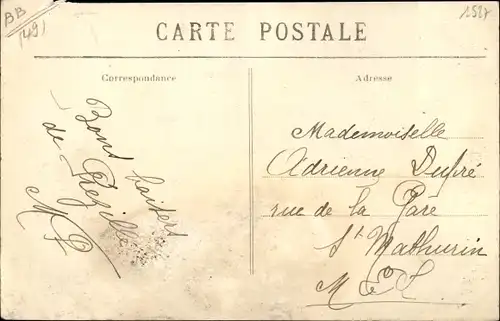 BB
(49)
1527
CARTE POSTALE
Correspondance
Adresse
Bons baisers
de Grézillé
M P
Mademoiselle
Adrienne Dupré
rue de la Gare
St Mathurin
M & L